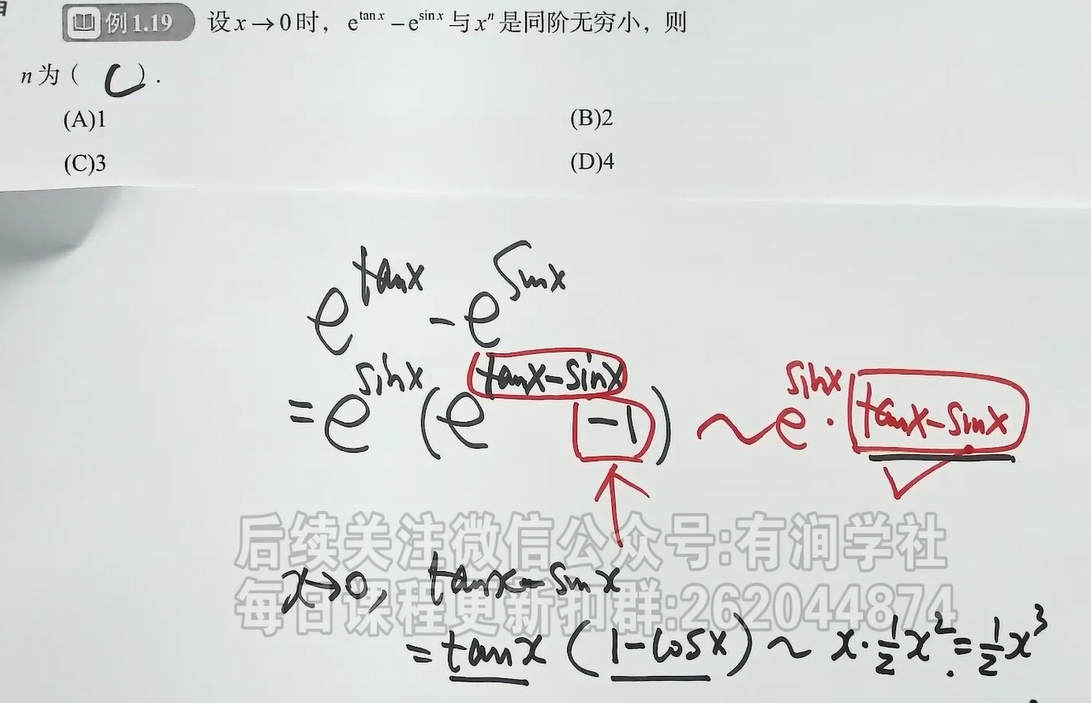 例 1.19 设 x → 0 时，e^{tan x} − e^{sin x} 与 x^n 是同阶无穷小，则
n 为（ C ）.
(A)1 (B)2
(C)3 (D)4
e^{tanx} - e^{sinx}
= e^{sinx} (e^{tanx-sinx} -1) ~ e^{sinx} · tanx-sinx
后续关注微信公众号:有润学社
x→0, tanx - sinx
每日课程更新扣群:262044874
= tanx (1-cosx) ~ x · 1/2 x² = 1/2 x³